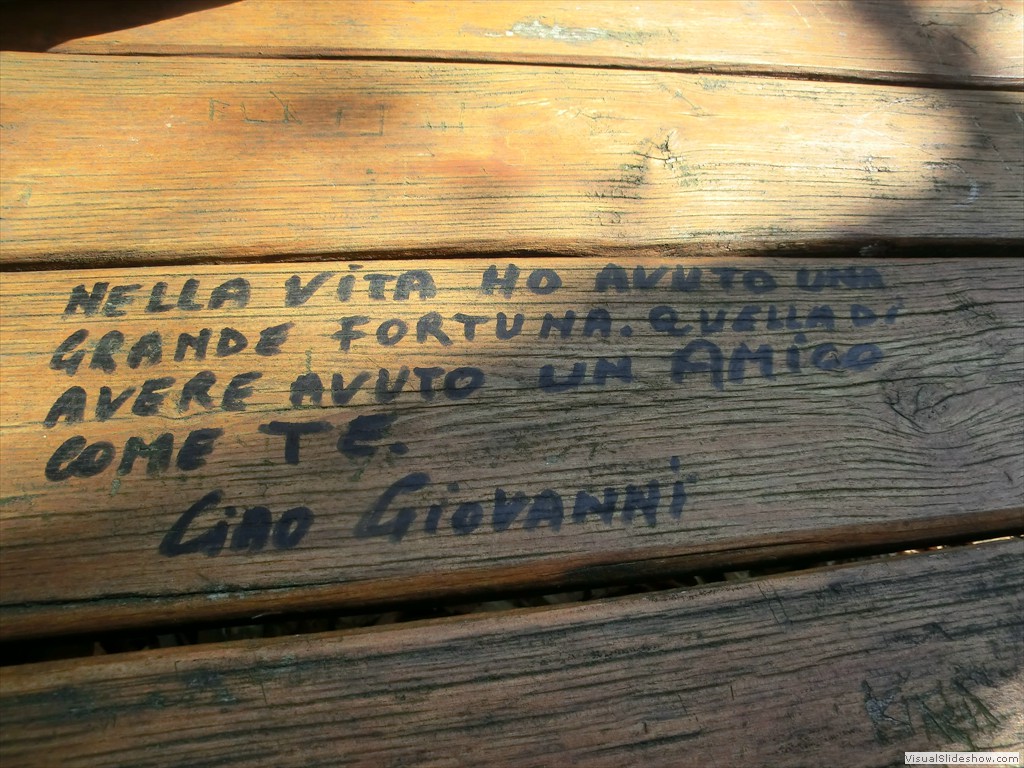 NELLA VITA HO AVUTO UNA
GRANDE FORTUNA. QUELLA DI
AVERE AVUTO UN AMICO
COME TE.
CIAO GIOVANNI
VisualSlideshow.com